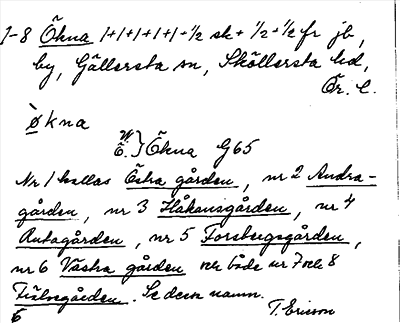 1-8 Ökna 1+1+1+1+1+½ sk + ½+½ fr jb,
by, Gällersta sn, Sköllersta hd,
Ör. l.
ø̀kna
W.
Ö. } Ökna G65
Nr 1 kallas Östra gården, nr 2 Andra-
gården, nr 3 Håkansgården, nr 4
Antagården, nr 5 Forsbergsgården,
nr 6 Västra gården och både nr 7 och 8
. Se dessa namn.
T. Ericson
6